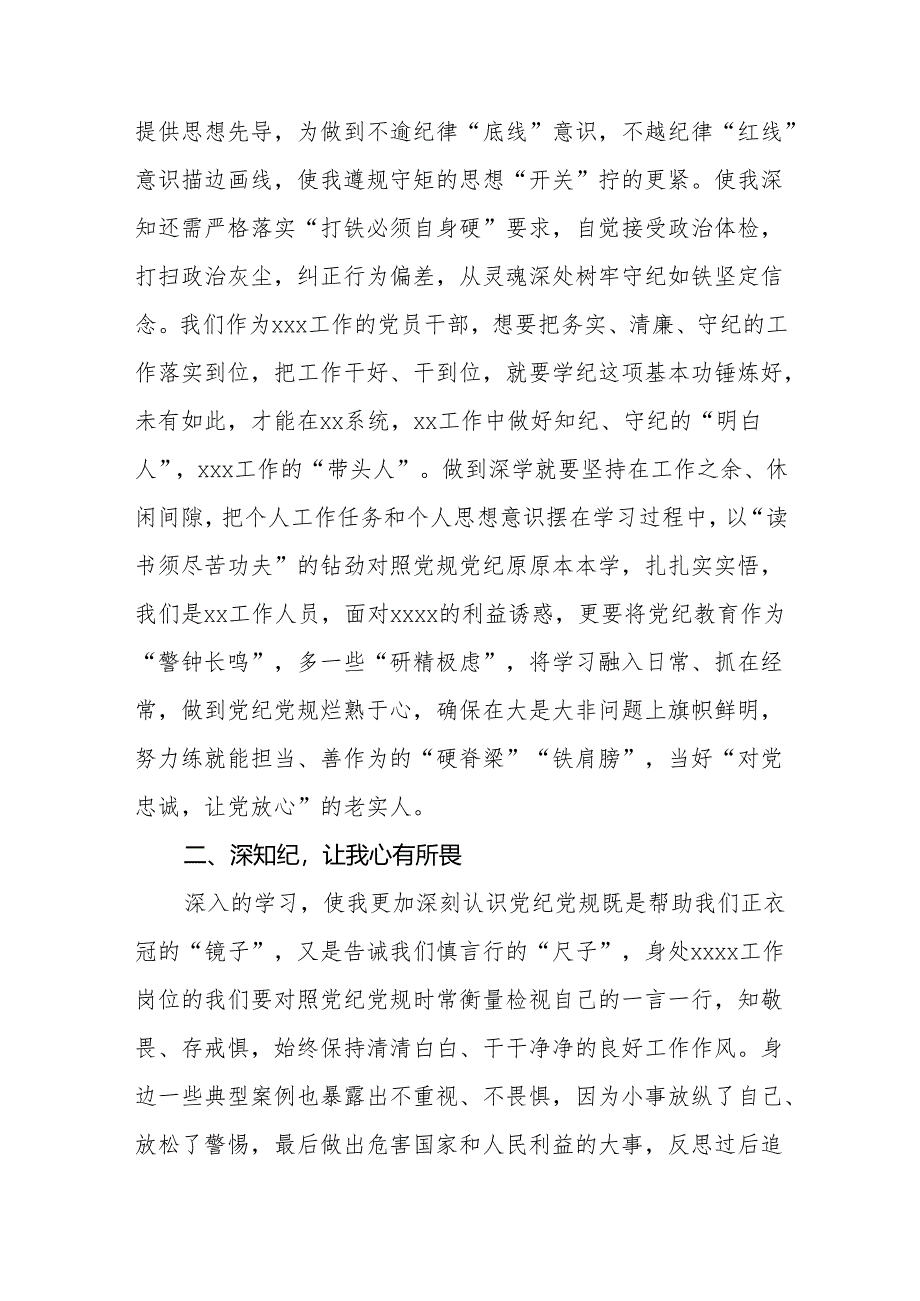 提供思想先导，为做到不逾纪律“底线”意识，不越纪律“红线”
意识描边画线，使我遵规守矩的思想“开关”拧的更紧。使我深
知还需严格落实“打铁必须自身硬”要求，自觉接受政治体检，
打扫政治灰尘，纠正行为偏差，从灵魂深处树牢守纪如铁坚定信
念。我们作为xxx工作的党员干部，想要把务实、清廉、守纪的工
作落实到位，把工作干好、干到位，就要学纪这项基本功锤炼好，
未有如此，才能在xx系统，xx工作中做好知纪、守纪的“明白
人”，xxx工作的“带头人”。做到深学就要坚持在工作之余、休
闲间隙，把个人工作任务和个人思想意识摆在学习过程中，以“读
书须尽苦功夫”的钻劲对照党规党纪原原本本学，扎扎实实悟，
我们是xx工作人员，面对xxxx的利益诱惑，更要将党纪教育作为
“警钟长鸣”，多一些“研精极虑”，将学习融入日常、抓在经
常，做到党纪党规烂熟于心，确保在大是大非问题上旗帜鲜明，
努力练就能担当、善作为的“硬脊梁”“铁肩膀”，当好“对党
忠诚，让党放心”的老实人。
二、深知纪，让我心有所畏
深入的学习，使我更加深刻认识党纪党规既是帮助我们正衣
冠的“镜子”，又是告诫我们慎言行的“尺子”，身处xxxx工作
岗位的我们要对照党纪党规时常衡量检视自己的一言一行，知敬
畏、存戒惧，始终保持清清白白、干干净净的良好工作作风。身
边一些典型案例也暴露出不重视、不畏惧，因为小事放纵了自己、
放松了警惕，最后做出危害国家和人民利益的大事，反思过后追